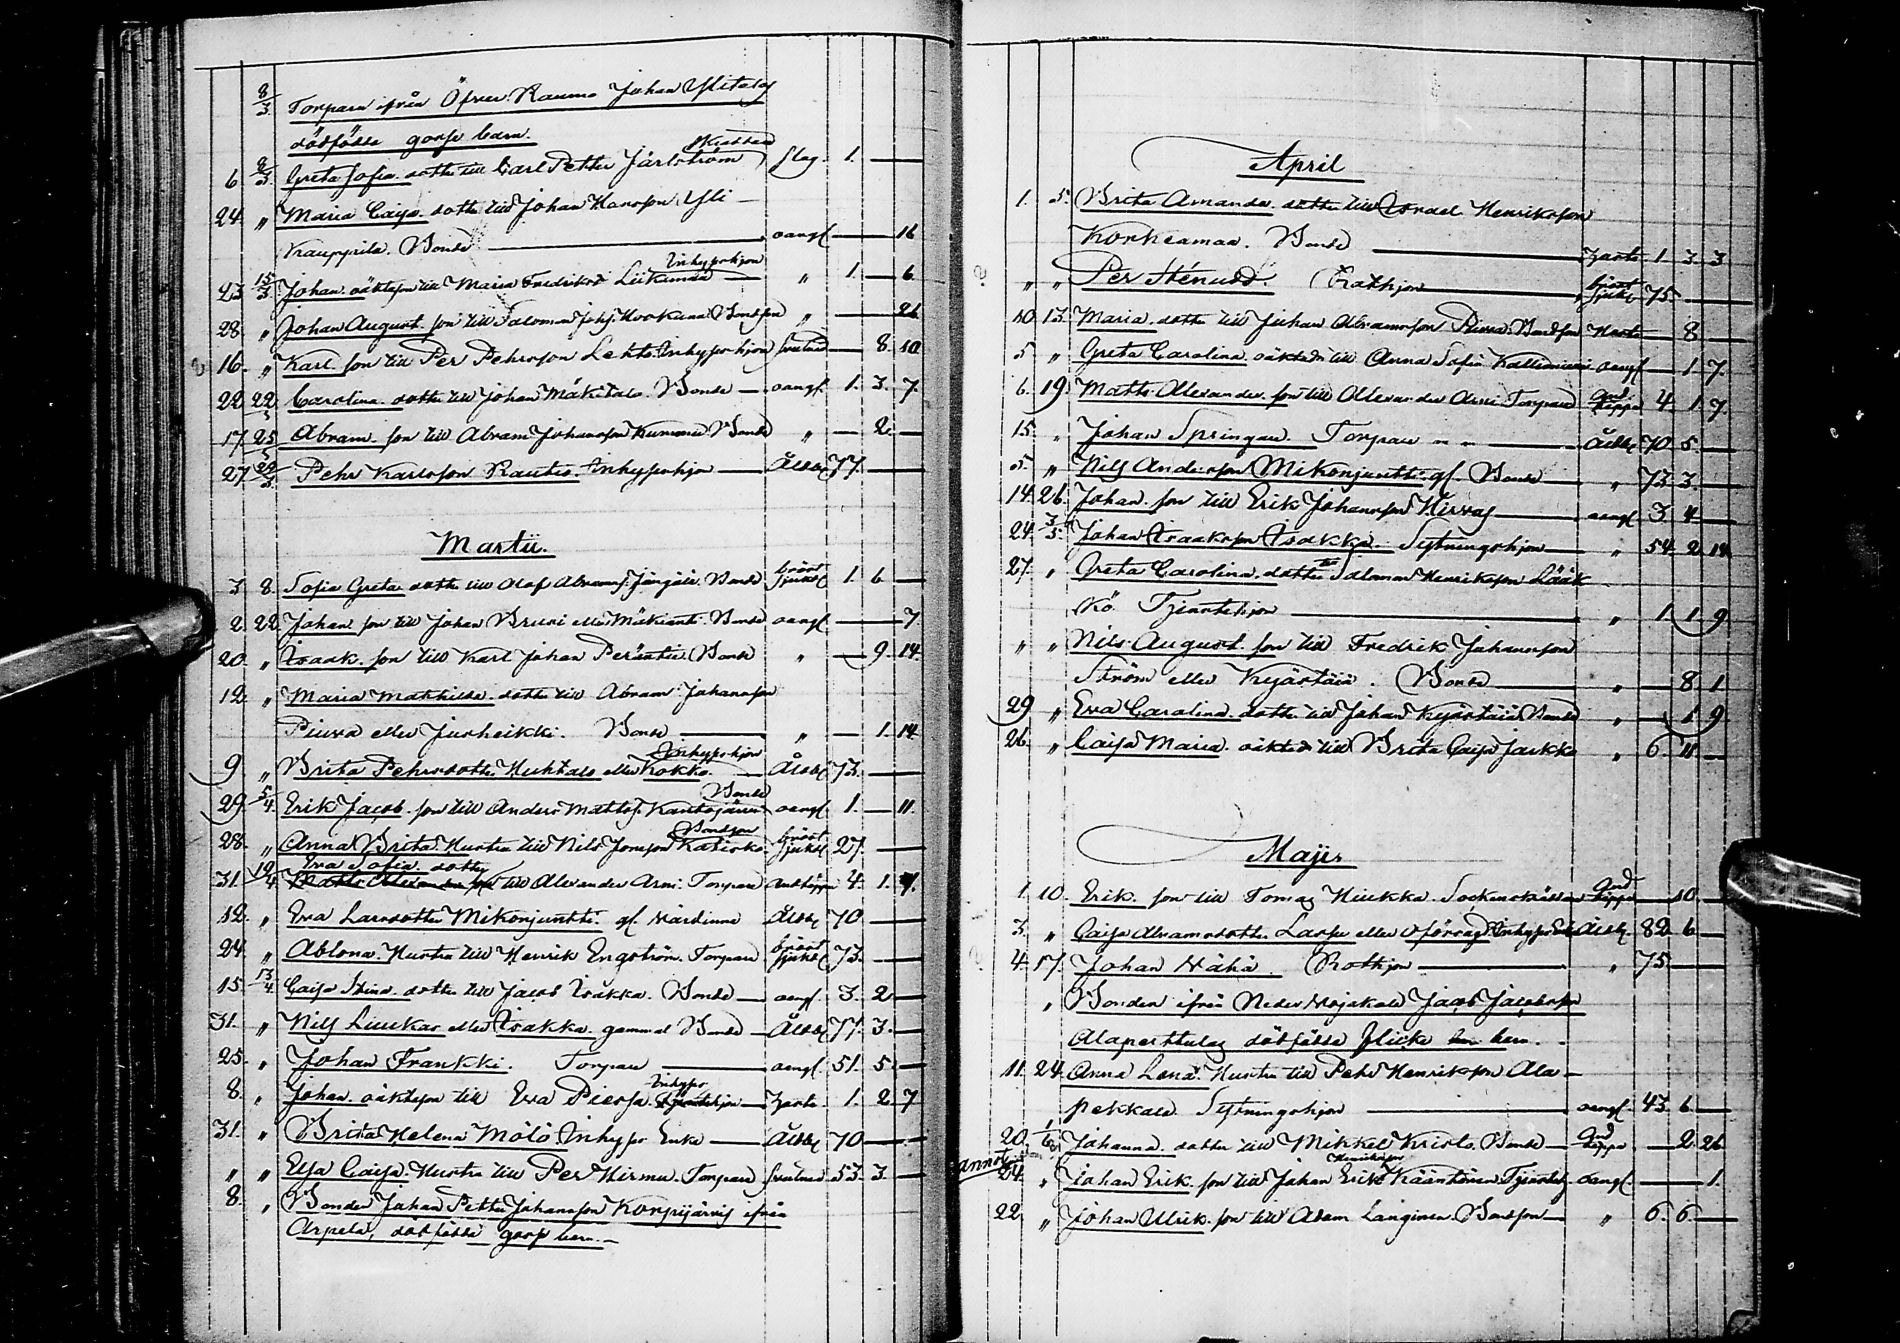 8/3 Torparen ifrån Öfver Raumo Johan Ylitalos
dödfödde gosse barn.
6 8/3 Greta Sofia dotter till Carl Petter Järlström, slag. 1. —
24. " Maria Caijsa dotter till Johan Hansson Yli
Krauppila. Bonde — oangf. — 16
Inhyseshjon
23 15/3 Johan oäkta son till Maria Fredriksd Liikamaa " 1. — 6.
28. " Johan August. son till Salomon Johs. Bondson " — 26
16. " Karl son till Per Pehrsson Lehto Inhyseshjon — 8 10
22 22 Carolina dotter till Johan Mäkitalo. Bonde — oangf. 1. 3. 7.
17. 25 Abram son till Abram Johansson Kummu Bonde " — 2. —
27 29/3 Pehr Karlsson Rautio. Inhyseshjon — Åldd. 77. —
Martii.
3 8. Sofia Greta dotter till Olof Abramss. Bonde bröstsjukd. 1. 6 —
2. 22 Johan son till Johan Bruuri eller Mäkianti. Bonde oangf. — 7
20. " Isaak. son till Karl Johan Peräntie. Bonde " — 9. 14.
12. " Maria Mathilda. dotter till Abram Johansson
Piuva eller Juxheikki. Bonde — " — 1. 14
Inhyseshjon
9 " Brita Pehrsdotter Huhtalo eller Kokko. — Åldd. 73. —
Bonde
29. 5/4 Erik Jacob. son till Anders Mattss. Kantojärvi oangf. 1. — 11.
Bondson
28. " Anna Brita. Hustru till Nils Jonsson Katisko. bröstsjukd. 27. —
Eva Sofia. dotter
31. 19/4 till Alexander Arni. Torpare andtäppa 4. 1. 7.
12. " Eva Larsdotter Mikonjuntti. gl. Värdinna Åldd. 70 —
24. " Ablona. Hustru till Henrik Engström. Torpare bröstsjukd. 73. —
15. 13/4 Caijsa Stina. dotter till Jacob Isakka. Bonde — oangf. 3. 2 —
31. " Nils Liuukas eller Isakka. gammal Bonde — Åldd. 77. 3. —
25. " Johan Frankki. Torpare — oangf. 51. 5 —
Inhyses
8. " Johan oäkta son till Eva Piersa — 1. 2 7
31. " Brita Helena Mölö Inhyses Enka — Åldd. 70 — —
" " Elsa Caijsa. Hustru till Per Hirmu. Torpare 53. 3. —
8. " Bonden Johan Petter Johansson Korpijärvis ifrån
Arpela, dödfödde gosse barn. —
April
1. 5. Brita Amanda. dotter till Israel Henriksson
Korkeamaa. Bonde — 1. 3. 3
" " Per Stenudd. Rothjon — bröstsjukd. 75. —
10 13. Maria. dotter till Johan Abramsson Piuva. Bondson — 8 —
5 " Greta Carolina oäkta dr till Anna Sofia Kallioniemi oangf. — 1. 7.
6. 19. Matts Alexander. son till Alexander Arni Torpare andtäppa 4. 1. 7.
15. " Johan Springare. Torpare " " — Åldd. 70 5. —
5. " Nils Andersson Mikonjuntti gl. Bonde — " 73. 3. —
14. 26. Johan. son till Erik Johansson Hirvas — oangf. 3. 4 —
24. 3/5. Johan Isaksson Isakka. Sytningshjon — " 54. 2. 14.
27. " Greta Carolina. dotter till Salomon Henriksson Lääk
kö. Tjenstehjon — " 1. 1. 9
" " Nils August. son till Fredrik Johansson
Ström eller Kyöstäjä. Bonde — " — 8. 1
29 " Eva Carolina. dotter till Johan Kyöstäjä Bonde " — 1. 9
26. " Caijsa Maria. oäkta dr till Brita Caijsa Jarkko " 6. 11. —
Maji
1. 10. Erik. son till Tomas Hiukka. andtäppa — 10. —
3. " Caijsa Abramsdotter Lassi eller Inhyses Åldd. 82. 6. —
4. 17. Johan Vähä. Rothjon — " 75. —
" Bonden ifrån Neder Vojakala Jacob Jacobsson
Alaperttulas dödfödde flicke barn. —
11. 24. Anna Lena. Hustru till Pehr Henriksson Ala—
pekkala. Sytningshjon — oangf. 43. 6. —
20. 1/6 Johanna. dotter till Mikkel Kristo. Bonde — andtäppa — 2. 26
Henriksson
24. " Johan Erik. son till Johan Erik Kääntönen oangf. — 1.
22 " Johan Ulrik. son till Adam Langinen. Bondson — " 6. 6. —